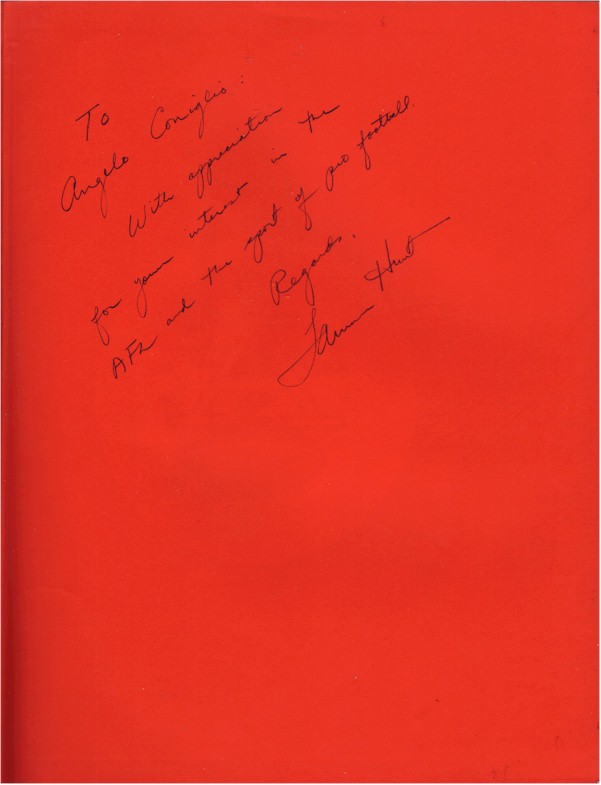 To
Angelo Coniglio:
With appreciation
for your interest in the
AFL and the sport of pro football.
Regards,
Lamar Hunt